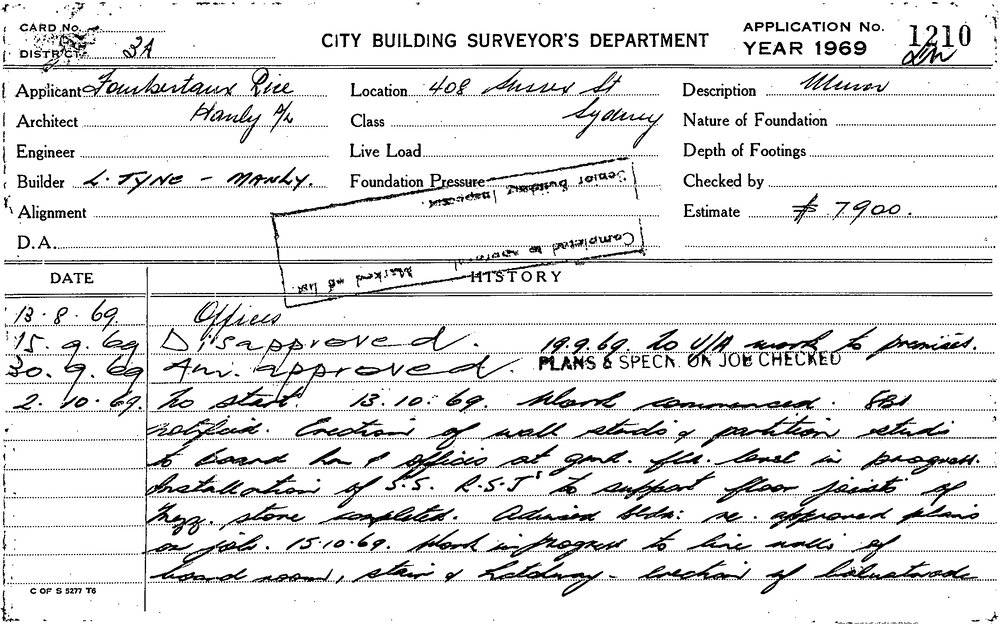 CARD No.
DISTRICT 3A
CITY BUILDING SURVEYOR'S DEPARTMENT
APPLICATION No. 1210
YEAR 1969
Applicant Fombertaux Rice
Hanly P/L
Location 408 Sussex St
Sydney
Description
Architect
Class
Nature of Foundation
Engineer
Live Load
Depth of Footings
Builder L. TYNE - MANLY.
Foundation Pressure
Checked by
Alignment
Estimate $ 7900.
D.A.
Completed to approval
Marked off list.
Senior Building Inspector.
DATE
HISTORY
13.8.69. Offices
15.9.69 Disapproved. 19.9.69. No U/A work to premises.
30.9.69 Am. approved. PLANS & SPECN. ON JOB CHECKED
2.10.69. No start. 13.10.69. Work commenced. SBI
notified. Erection of wall studs & partition studs
to board rm & offices at grnd. flr. level in progress.
Installation of S.S. R.S.J's to support floor joists of
Mezz. store completed. Advised bldr. re. approved plans
on job. 15.10.69. Work in progress to line walls of
board room, stair & hatchway - erection of balustrade
C OF S 5277 T6